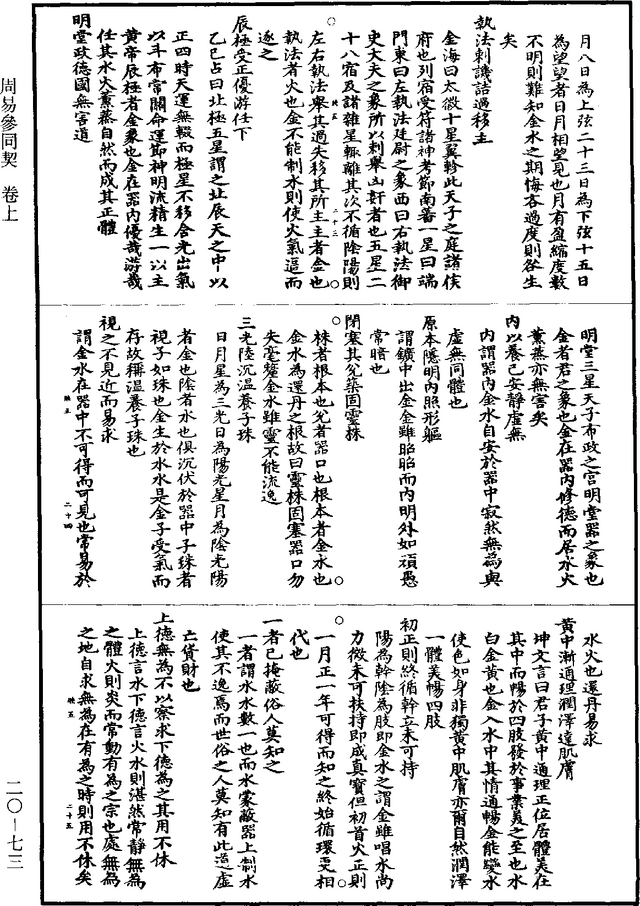 月八日為上弦二十三日為下弦十五日
為望望者日月相望見也月有盈縮度數
不明則難知金水之期悔吝過度則咎生
矣
執法刺譏詰過移主
金海曰太微十星翼軫此天子之庭諸侯
府也列宿受符諸神考節南蕃一星曰端
門東曰左執法廷尉之象西曰右執法御
史大夫之象所以刺舉凶奸者也五星二
十八宿及諸雜星輙離其次不循陰陽則
左右執法舉其過失移其所主主者金也
執法者火也金不能制水則使火氣逼而
逐之
辰極受正優游任下
乙巳占曰北極五星謂之北辰天之中以
正四時天運無輟而極星不移合光出氣
以斗布常開命運節神明流精生一以主
黃帝辰極者金象也金在器內優哉游哉
任其水火薰蒸自然而成其正體
明堂政德國無害道
明堂三星天子布政之宮明堂器之象也
金者君之象也金在器內修德而居水火
薰蒸亦無害矣
內以養己安靜虛無
內謂器內金水自安於器中寂然無為與
虛無同體也
原本隱明內照形軀
謂鑛中出金金雖昭昭而內明外如頑愚
常暗也
閉塞其兌築固靈株
株者根本也兌者器口也根本者金水也
金水為還丹之根故曰靈株固塞器口勿
失毫釐金水雖靈不能流逸
三光陸沉溫養子珠
日月星為三光日為陽光星月為陰光陽
者金也陰者水也俱沉伏於器中子珠者
視子如珠也金生於水水是金子受氣而
存故稱溫養子珠也
視之不見近而易求
謂金水在器中不可得而可見也常易於
水火也還丹易求
黃中漸通理潤澤達肌膚
坤文言曰君子黃中通理正位居體美在
其中而暢於四肢發於事業美之至也水
白金黃也金入水中其情通暢金能變水
使色如身非獨黃中肌膚亦爾自然潤澤
一體美暢四肢
初正則終循幹立末可持
陽為幹陰為肢即金水之謂金雖唱水尚
力微未可扶持即成真寶但初首火正則
一月正一年可得而知之終始循環更相
代也
一者已掩蔽俗人莫知之
一者謂水水數一也而水蒙蔽器上制水
使其不逸焉而世俗之人莫知有此造虛
亡貨財也
上德無為不以察求下德為之其用不休
上德言水下德言火水則湛然常靜無為
之體火則炎而常動有為之宗也處無為
之地自求無為在有為之時則用不休矣
周易參同契 卷上
二〇－七三